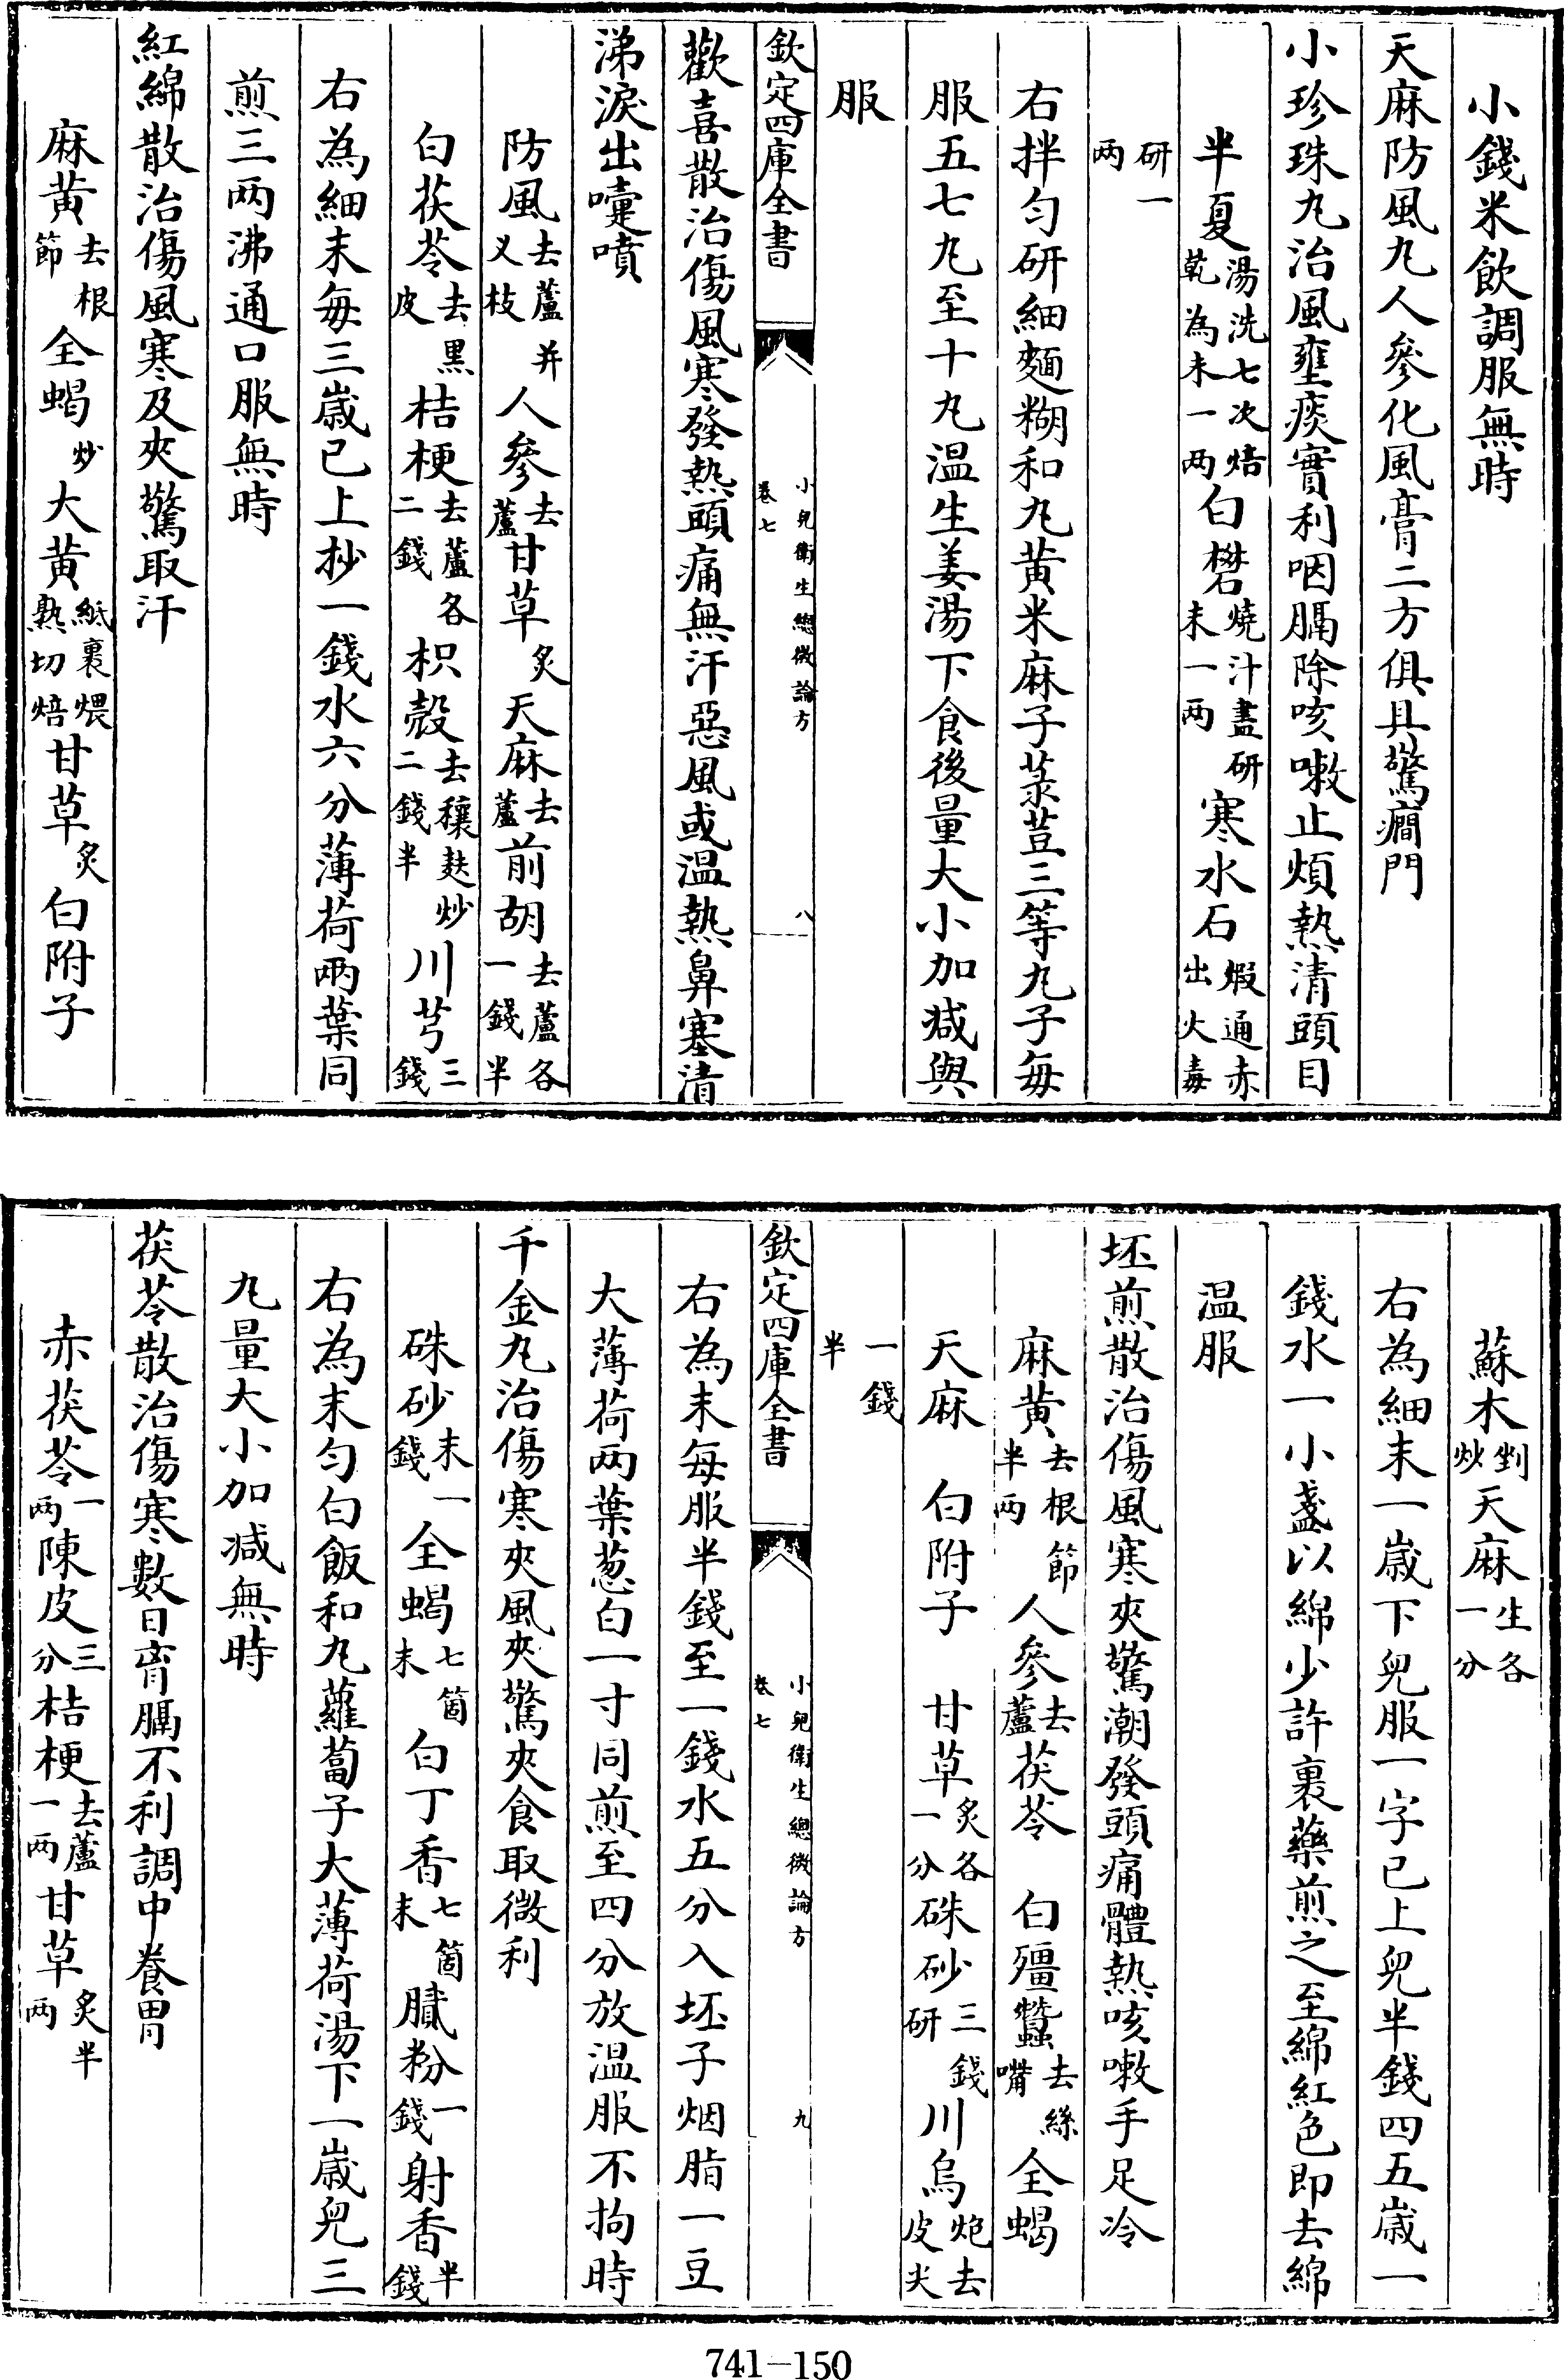 小錢米飲調服無時
天麻防風丸人參化風膏二方俱具驚癇門
小珍珠丸治風壅痰實利咽膈除咳嗽止煩熱清頭目
半夏湯洗七次焙乾為末一两白礬燒汁盡研末一两寒水石煅通赤出火毒
研一两
右拌勻研細麵糊和丸黄米麻子菉荳三等丸子毎
服五七丸至十丸温生姜湯下食後量大小加减與
服
欽定四庫全書 小兒衛生總微論方 卷七 八
歡喜散治傷風寒發熱頭痛無汗惡風或温熱鼻塞清
涕淚出嚏噴
防風去蘆并义枝人參去蘆甘草炙天麻去蘆前胡去蘆各一錢半
白茯苓去黑皮桔梗去蘆各二錢枳殻去穰麩炒二錢半川芎三錢
右為細末毎三歲已上抄一錢水六分薄荷兩葉同
煎三两沸通口服無時
紅綿散治傷風寒及夾驚取汗
麻黄去根節全蝎炒大黄紙裹煨熟切焙甘草炙白附子
蘇木剉炒天麻生各一分
右為細末一歲下兒服一字已上兒半錢四五歲一
錢水一小盞以綿少許裹藥煎之至綿紅色即去綿
温服
坯煎散治傷風寒夾驚潮發頭痛體熱咳嗽手足冷
麻黄去根節半两人參去蘆茯苓 白殭蠶去絲嘴全蝎
天麻 白附子 甘草炙各一分硃砂三錢研川烏炮去皮尖
一錢半
欽定四庫全書 小兒衛生總微論方 卷七 九
右為末每服半錢至一錢水五分入坯子烟脂一豆
大薄荷两葉葱白一寸同煎至四分放温服不拘時
千金丸治傷寒夾風夾驚夾食取微利
硃砂末一錢全蝎七箇末白丁香七箇末膩粉一錢射香半錢
右為末勻白飯和丸蘿蔔子大薄荷湯下一歲兒三
丸量大小加减無時
茯苓散治傷寒數日胷膈不利調中養胃
赤茯苓一两陳皮三分桔梗去蘆一两甘草炙半两
741—150